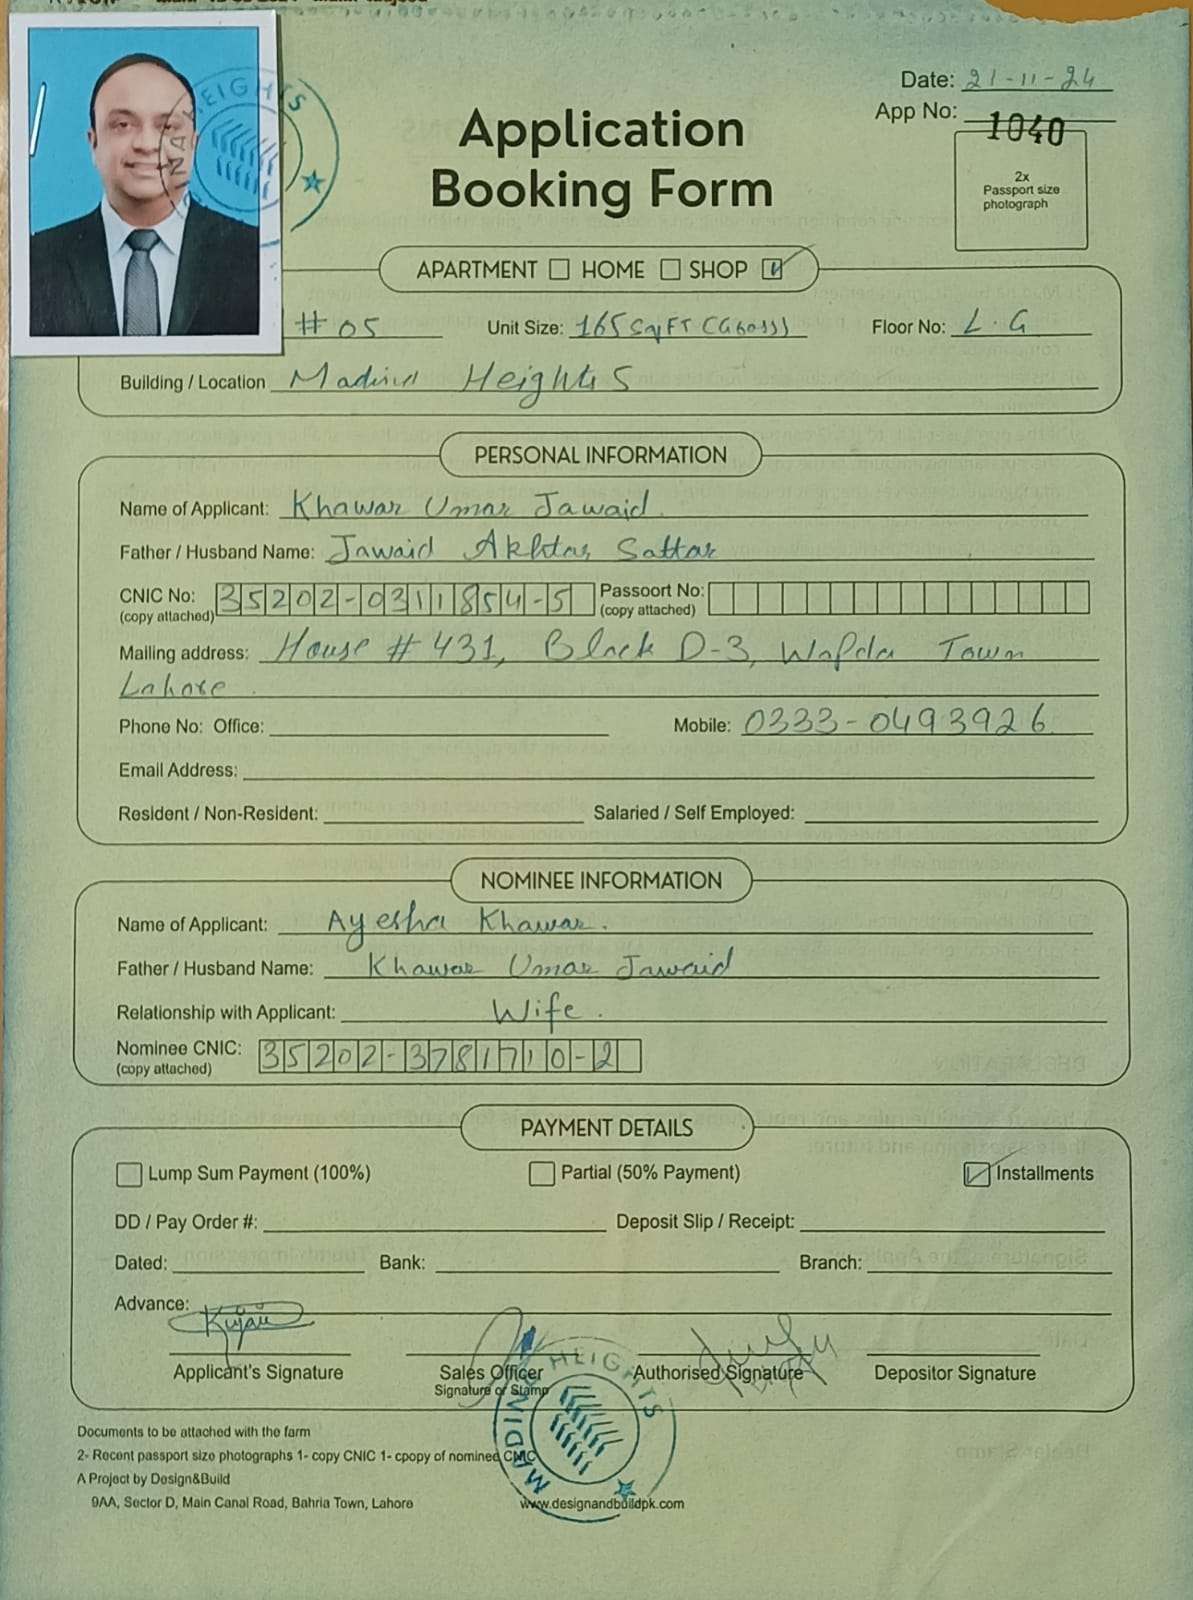 Date: 21-11-24
App No: 1040
Application
Booking Form
2x
Passport size
photograph
APARTMENT HOME SHOP
#05 Unit Size: 165 SqFT (Gross) Floor No: L.G
Building / Location Madina Heights
PERSONAL INFORMATION
Name of Applicant: Khawar Umar Jawaid
Father / Husband Name: Jawaid Akhtar Sattar
CNIC No: 35202-0311854-5 Passoort No:
(copy attached) (copy attached)
Mailing address: House # 431, Block D-3, Wapda Town
Lahore
Phone No: Office: Mobile: 0333-0493926
Email Address:
Resident / Non-Resident: Salaried / Self Employed:
NOMINEE INFORMATION
Name of Applicant: Ayesha Khawar.
Father / Husband Name: Khawar Umar Jawaid
Relationship with Applicant: Wife.
Nominee CNIC: 35202-3781710-2
(copy attached)
PAYMENT DETAILS
Lump Sum Payment (100%) Partial (50% Payment) Installments
DD / Pay Order #: Deposit Slip / Receipt:
Dated: Bank: Branch:
Advance:
Applicant's Signature Sales Officer Authorised Signature Depositor Signature
Signature or Stamp
MADINA HEIGHTS
Documents to be attached with the farm
2- Recent passport size photographs 1- copy CNIC 1- cpopy of nomined CNIC
A Project by Design&Build
9AA, Sector D, Main Canal Road, Bahria Town, Lahore www.designandbuildpk.com